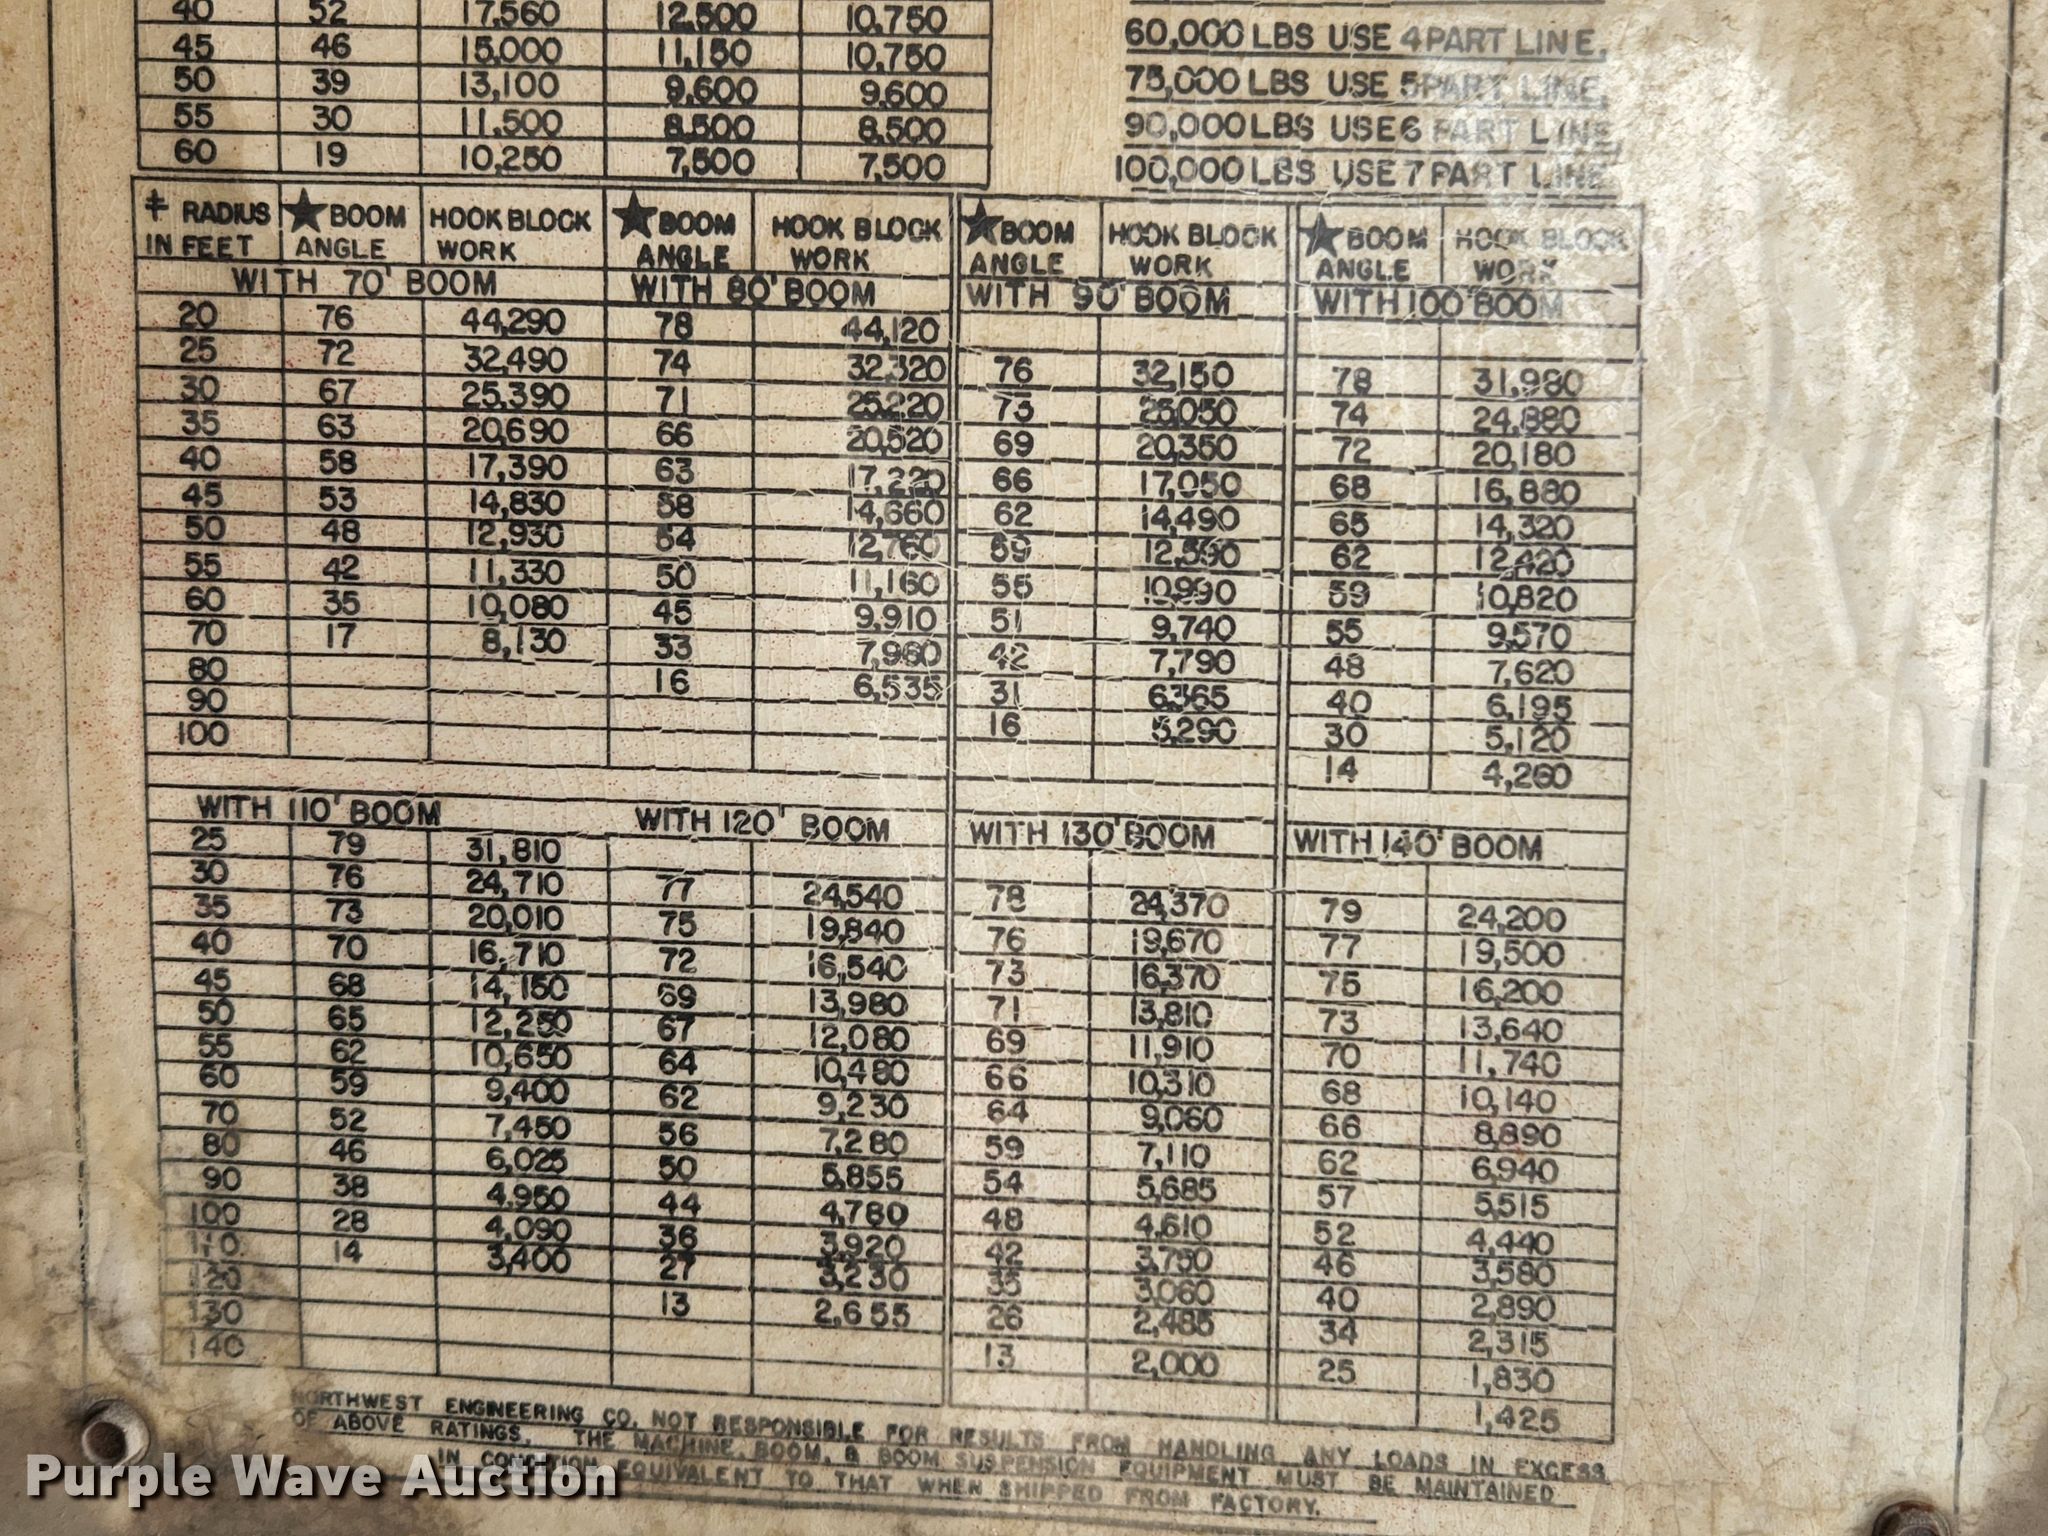 40 52 17,560 12,500 10,750
60,000 LBS USE 4 PART LINE.
45 46 15,000 11,150 10,750
75,000 LBS USE 5 PART LINE.
50 39 13,100 9,600 9,600
90,000 LBS USE 6 PART LINE
55 30 11,500 8,500 8,500
100,000 LBS USE 7 PART LINE.
60 19 10,250 7,500 7,500
‡ RADIUS ★BOOM HOOK BLOCK ★BOOM HOOK BLOCK ★BOOM HOOK BLOCK ★BOOM HOOK BLOCK
IN FEET ANGLE WORK ANGLE WORK ANGLE WORK ANGLE WORK
WITH 70' BOOM WITH 80' BOOM WITH 90' BOOM WITH 100' BOOM
20 76 44,290 78 44,120
25 72 32,490 74 32,320 76 32,150 78 31,980
30 67 25,390 71 25,220 73 25,050 74 24,880
35 63 20,690 66 20,520 69 20,350 72 20,180
40 58 17,390 63 17,220 66 17,050 68 16,880
45 53 14,830 58 14,660 62 14,490 65 14,320
50 48 12,930 54 12,760 59 12,590 62 12,420
55 42 11,330 50 11,160 55 10,990 59 10,820
60 35 10,080 45 9,910 51 9,740 55 9,570
70 17 8,130 33 7,960 42 7,790 48 7,620
80 16 6,535 31 6,365 40 6,195
90 16 5,290 30 5,120
100 14 4,260
WITH 110' BOOM WITH 120' BOOM WITH 130' BOOM WITH 140' BOOM
25 79 31,810
30 76 24,710 77 24,540 78 24,370 79 24,200
35 73 20,010 75 19,840 76 19,670 77 19,500
40 70 16,710 72 16,540 73 16,370 75 16,200
45 68 14,150 69 13,980 71 13,810 73 13,640
50 65 12,250 67 12,080 69 11,910 70 11,740
55 62 10,650 64 10,480 66 10,310 68 10,140
60 59 9,400 62 9,230 64 9,060 66 8,890
70 52 7,450 56 7,280 59 7,110 62 6,940
80 46 6,025 50 5,855 54 5,685 57 5,515
90 38 4,950 44 4,780 48 4,610 52 4,440
100 28 4,090 36 3,920 42 3,750 46 3,580
110 14 3,400 27 3,230 35 3,060 40 2,890
120 13 2,655 26 2,485 34 2,315
130 13 2,000 25 1,830
140 1,425
NORTHWEST ENGINEERING CO. NOT RESPONSIBLE FOR RESULTS FROM HANDLING ANY LOADS IN EXCESS
OF ABOVE RATINGS. THE MACHINE, BOOM, & BOOM SUSPENSION EQUIPMENT MUST BE MAINTAINED
IN CONDITION EQUIVALENT TO THAT WHEN SHIPPED FROM FACTORY.
Purple Wave Auction